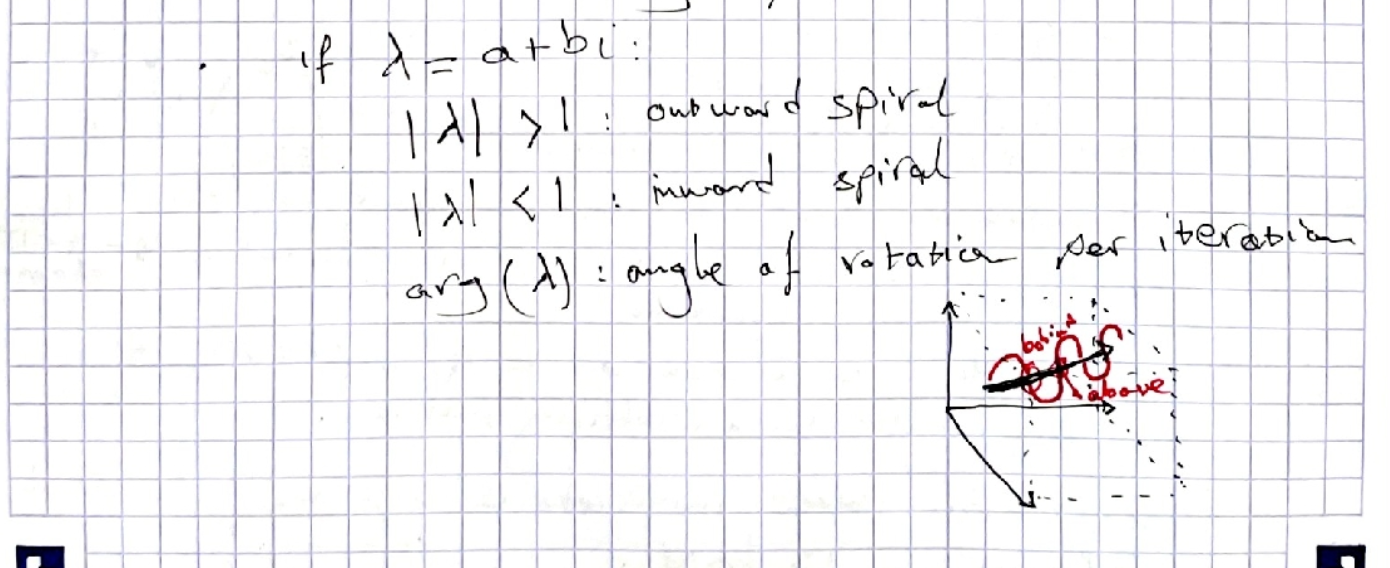 if λ = a+bi:
|λ| > 1 : outward spiral
|λ| < 1 : inward spiral
arg(λ) : angle of rotation per iteration
above